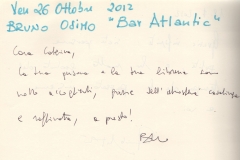 Ven 26 Ottobre 2012
BRUNO OSIMO "Bar Atlantic"
Cara Caterina,
la tua prima e la tua libreria sono
molto accoglienti, piene dell'atmosfera
e raffinata, a presto!